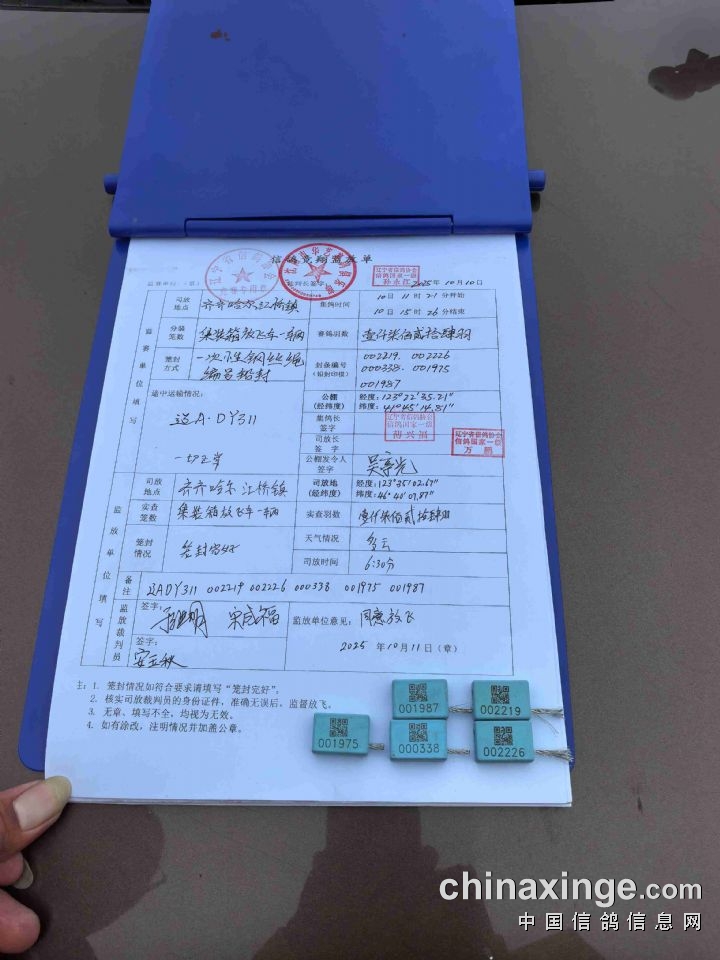 信鸽竞翔监放单
2025年10月10日
司放地点 齐齐哈尔江桥镇 集鸽时间 10日11时21分开始
10日15时26分结束
分装笼数 集装箱放飞车一辆 赛鸽羽数 壹仟柒佰贰拾肆羽
笼封方式 一次性钢丝绳编号铅封 封条编号(铅封印模) 002219 002226
000338 001975
001987
途中运输情况: 公棚(经纬度) 经度:123°22′35.21″
纬度:41°45′14.81″
辽A·DY311 集鸽长签字 辽宁省信鸽协会 信鸽国家一级 傅兴福
一切正常 司放长签字 辽宁省信鸽协会 信鸽国家一级 万鹏
公棚发令人签字
赛单位填写
司放地点 齐齐哈尔江桥镇 司放地(经纬度) 经度:123°35′02.67″
纬度:46°40′07.87″
实查笼数 集装箱放飞车一辆 实查羽数 壹仟柒佰贰拾肆羽
笼封情况 笼封完好 天气情况 多云
司放时间 6:30分
监放单位填写
备注 辽ADY311 002219 002226 000338 001975 001987
监放裁判员 签字: 宋成福 监放单位意见: 同意放飞
签字: 2025年10月11日(章)
主:1. 笼封情况如符合要求请填写“笼封完好”。
2. 核实司放裁判员的身份证件,准确无误后、监督放飞。
3. 无章、填写不全,均视为无效。
4. 如有涂改,注明情况并加盖公章。
001987
002219
001975
000338
002226
chinaxinge.com
中国信鸽信息网